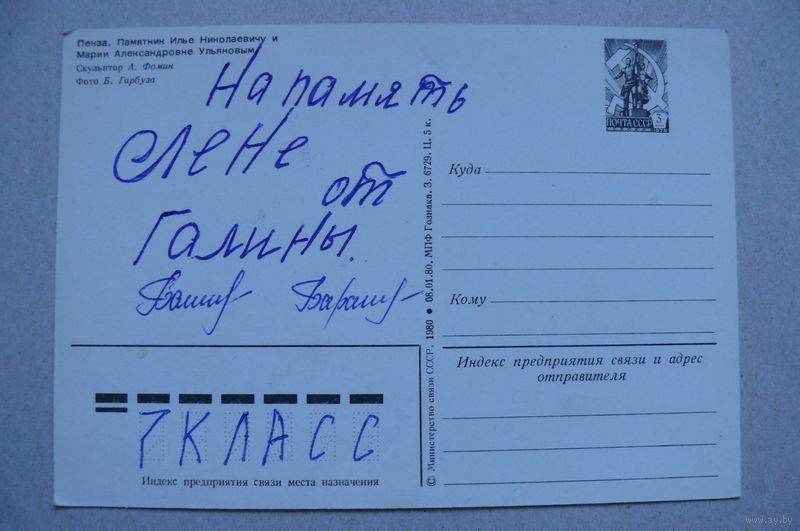 Пенза. Памятник Илье Николаевичу и
Марии Александровне Ульяновым
Скульптор А. Фомин
Фото Б. Гарбуза
На память
Лене
от
Галины.
7 КЛАСС
Индекс предприятия связи места назначения
© Министерство связи СССР. 1980 • 08.01.80. МПФ Гознака. З. 6729. Ц. 5 к.
ПОЧТА СССР 3
Куда
Кому
Индекс предприятия связи и адрес
отправителя
www.ay.by